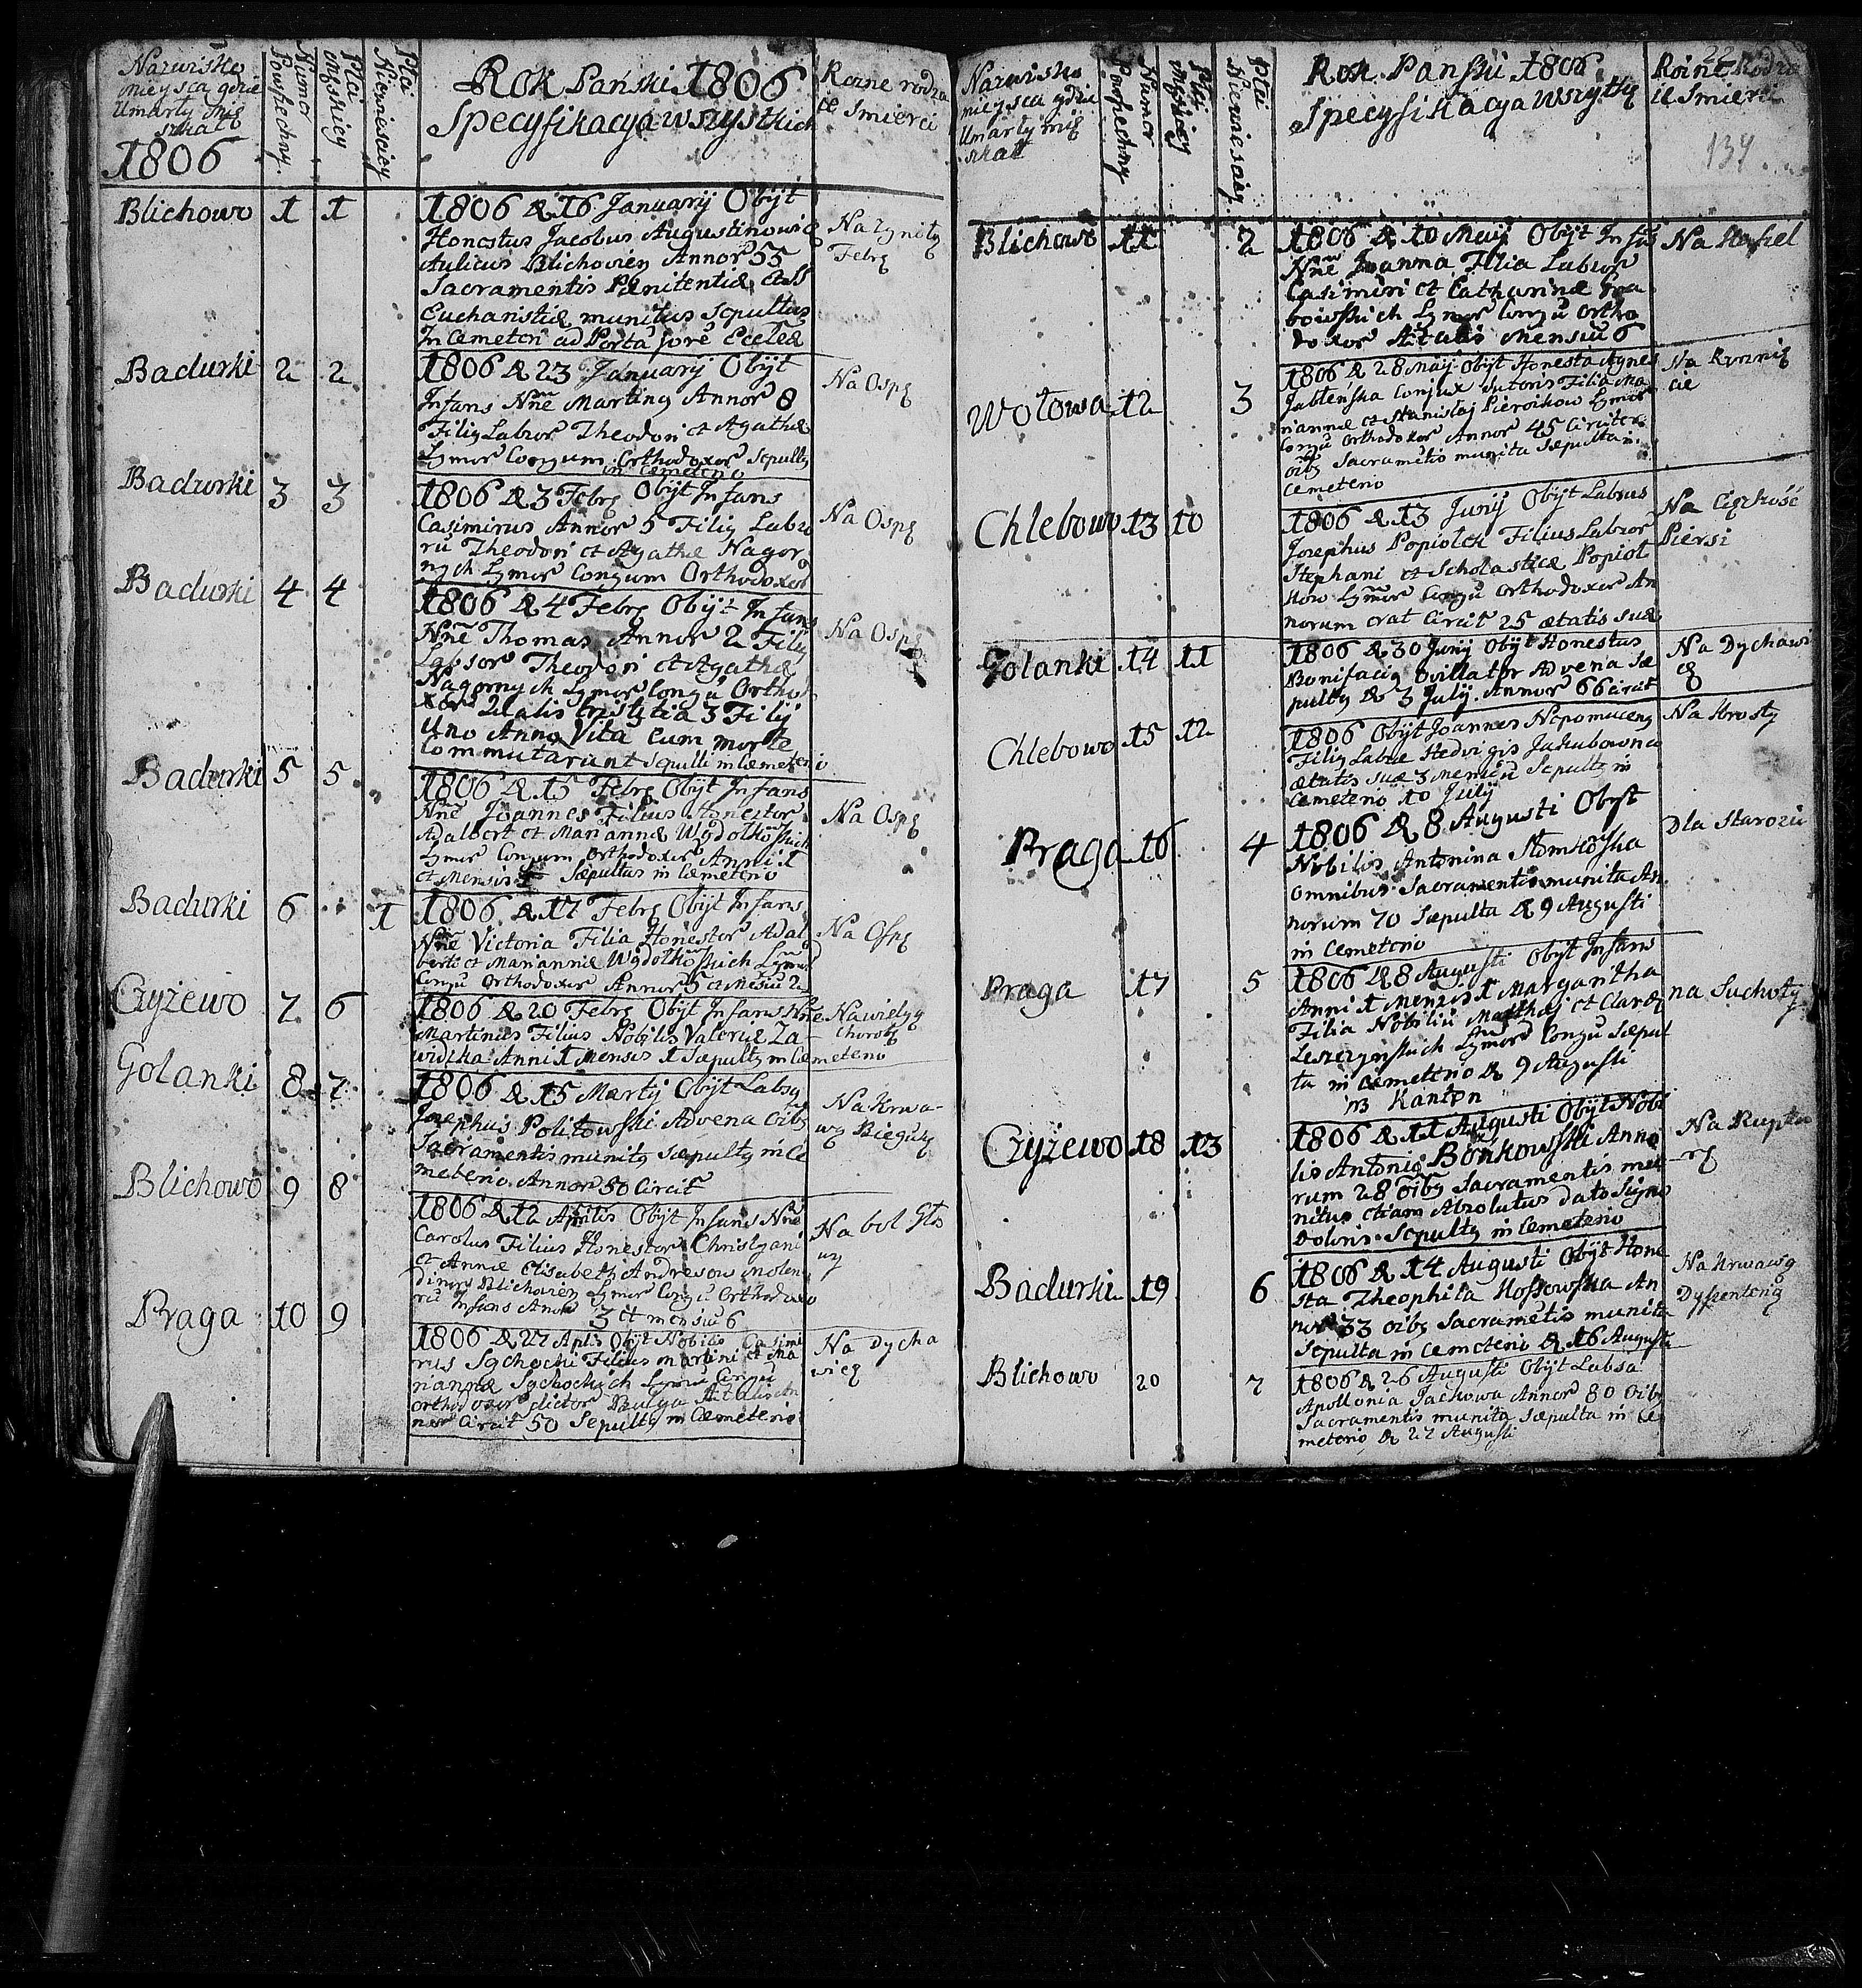 Nazwisko
mieysca gdzie
Umarły mię
szkał
1806
Numer
Powszechny.
Płci
Męskiey
Płci
Niewiesciey
Rok Pański 1806
Specyfikacya wszystkich
Rozne rodza
ie Smierci
Blichowo 1 1
1806 d 16 January Obijt
Honestus Jacobus Augustinowic
Aulicus Blichovien Annor 55
Sacramentis Pœnitentiæ et
Eucharistiæ munitus sepultus
In Cemeteri ad Porta forē Eccleæ
Na Zgniłą
Febrę
Badurki 2 2
1806 d 23 January Obijt
Infans Nñe Martinq Annor 8
Filiq Labror Theodori et Agathæ
Lgmor Congum Orthodoxor Sepultq
in Cæmeterio
Na Ospę
Badurki 3 3
1806 d 3 Febrq Obijt Infans
Casimirus Annor 5 Filiq Labro
rū Theodori et Agathæ Nagor
nych Lgmor Congum Orthodoxor
Na Ospę
Badurki 4 4
1806 d 4 Febrq Obijt Infans
Nñe Thomas Annor 2 Filiq
Labror Theodori et Agathæ
Nagornych Lgmor Congū Ortho
xor Qualis tristitia 3 Filij
Uno Anno Vita cum morte
Commutarunt sepulti in Cæmeterio
Na Ospę
Badurki 5 5
1806 d 15 Febrq Obijt Infans
Nñe Joannes Filius Honestor
Adalbert et Mariannæ Wądołkoskich
Lgmor Congum Orthodoxor Anni 1
et Mensis Sæpultus in Cæmeterio
Na Ospę
Badurki 6 1
1806 d 17 Febrq Obijt Infans
Nñe Victoria Filia Honestor Adal
berti et Mariannæ Wądołkoskich Lgmor
Congū Orthodoxor Annor 5 et Mēsiū 2
Na Ospę
Czyżewo 7 6
1806 d 20 Febrq Obijt Infans Nñe
Martinus Filius Nobilis Valeriæ Za
widzka Anni 1 Mensis 1 Sæpultq in Cæmeterio
Na wielgą
chorobę
Golanki 8 7
1806 d 15 Martij Obijt Labsq
Josephus Politowski Advena Oibq
Sacramentis munitq sæpultq in Ce
meterio Annor 50 Circit
Na Krwa-
wą Biegunkę
Blichowo 9 8
1806 d 12 Aprilis Obijt Infans Nñe
Carolus Filius Honestor Christyani
et Annæ Elisabeth Andresow Molen
dinar Blichovien Lgmor Congū Orthodoxo
rū Infans Annor 3 et mensiū 6
Na bol Gło
wy
Praga 10 9
1806 d 27 Aplis Obijt Nobilis Casimi
rus Sąchocki Filius Martini et Ma
riannæ Sąchockich Lgmor Congū
Orthodoxor dictor Praga Ætatis An
nor Circit 50 Sepultq in Cæmeterio
Na Dycha
wicę
Nazwisko
mieysca gdzie
Umarły mię
szkał
Numer
Powszechny
Płci
Męskiey
Płci
Niewiesciey.
Rok Panski 1806
Specyfikacya wszytkię
22
Rozne Rodza
ie Smierci
134
Blichowo 11 2
1806 d 10 Maij Obijt Infās
Nñe Joanna Filia Labror
Casimiri et Catharinæ Gra
bowskich Lgmor Congū Ortho
doxor Ætatis Mensiū 6
Na Kaszel
Wołowa 12 3
1806 d 28 Maij Obijt Honesta Agnes
Jabłeńska Conjux Sutoris Filia Ma
riannæ et Stanislaj Pierzikow Lgmor
Congū Orthodoxor Annor 45 Circiter
Oibq Sacramētis munita Sæpulta in
Cemeterio
Chlebowo 13 10
1806 d 13 Junij Obijt Labsus
Josephus Popiołek Filius Labror
Stephani et Scholasticæ Popioł
kow Lgmor Congū Orthodoxor An
norum erat Circit 25 ætatis suæ
Na Cięzkość
Piersi
Golanki 14 11
1806 d 30 Junij Obijt Honestus
Bonifaciq Ovillator Advena Sæ
pultq d 3 Julij Annor 66 Circit
Na Dychawi
cę
Chlebowo 15 12
1806 Obijt Joannes Nepomucenq
Filiq Labræ Hedvigis Jakubowna
Ætatis suæ 3 Mensiū Sepultq in
Cemeterio 10 Julij
Na Krosty
Praga 16 4
1806 d 8 Augusti Obijt
Nobilis Antonina Słomkoska
Omnibus Sacramentis munita An
norum 70 Sæpulta d 9 Augusti
in Cemeterio
Dla Starosci
Praga 17 5
1806 d 8 Augusti Obijt Infans
Anni 1 Mensis 1 Margaritha
Filia Nobiliū Mathæj et Claræ
Leszczynskich Lgmor Congū Sæpul
ta in Cemeterio d 9 Augusti
in Kanton
na Suchoty
Czyżewo 18 13
1806 d 11 Augusti Obijt Nobi
lis Antoniq Bonkowski Anno
rum 28 Oibq Sacramentis mu
nitus etiam Absolutus dato Signo
Doloris Sepultq in Cemeterio
Na Ruptu
rę
Badurki 19 6
1806 d 14 Augusti Obijt Hone
sta Theophila Kossowska An
nor 33 Oibq Sacramētis munita
Sepulta in Cemeterio d 16 Augusti
Na Krwawą
Dyssenterią
Blichowo 20 7
1806 d 26 Augusti Obijt Labsa
Apollonia Jachowa Annor 80 Oibq
Sacramentis munita Sæpulta in Ce
meterio d 27 Augusti